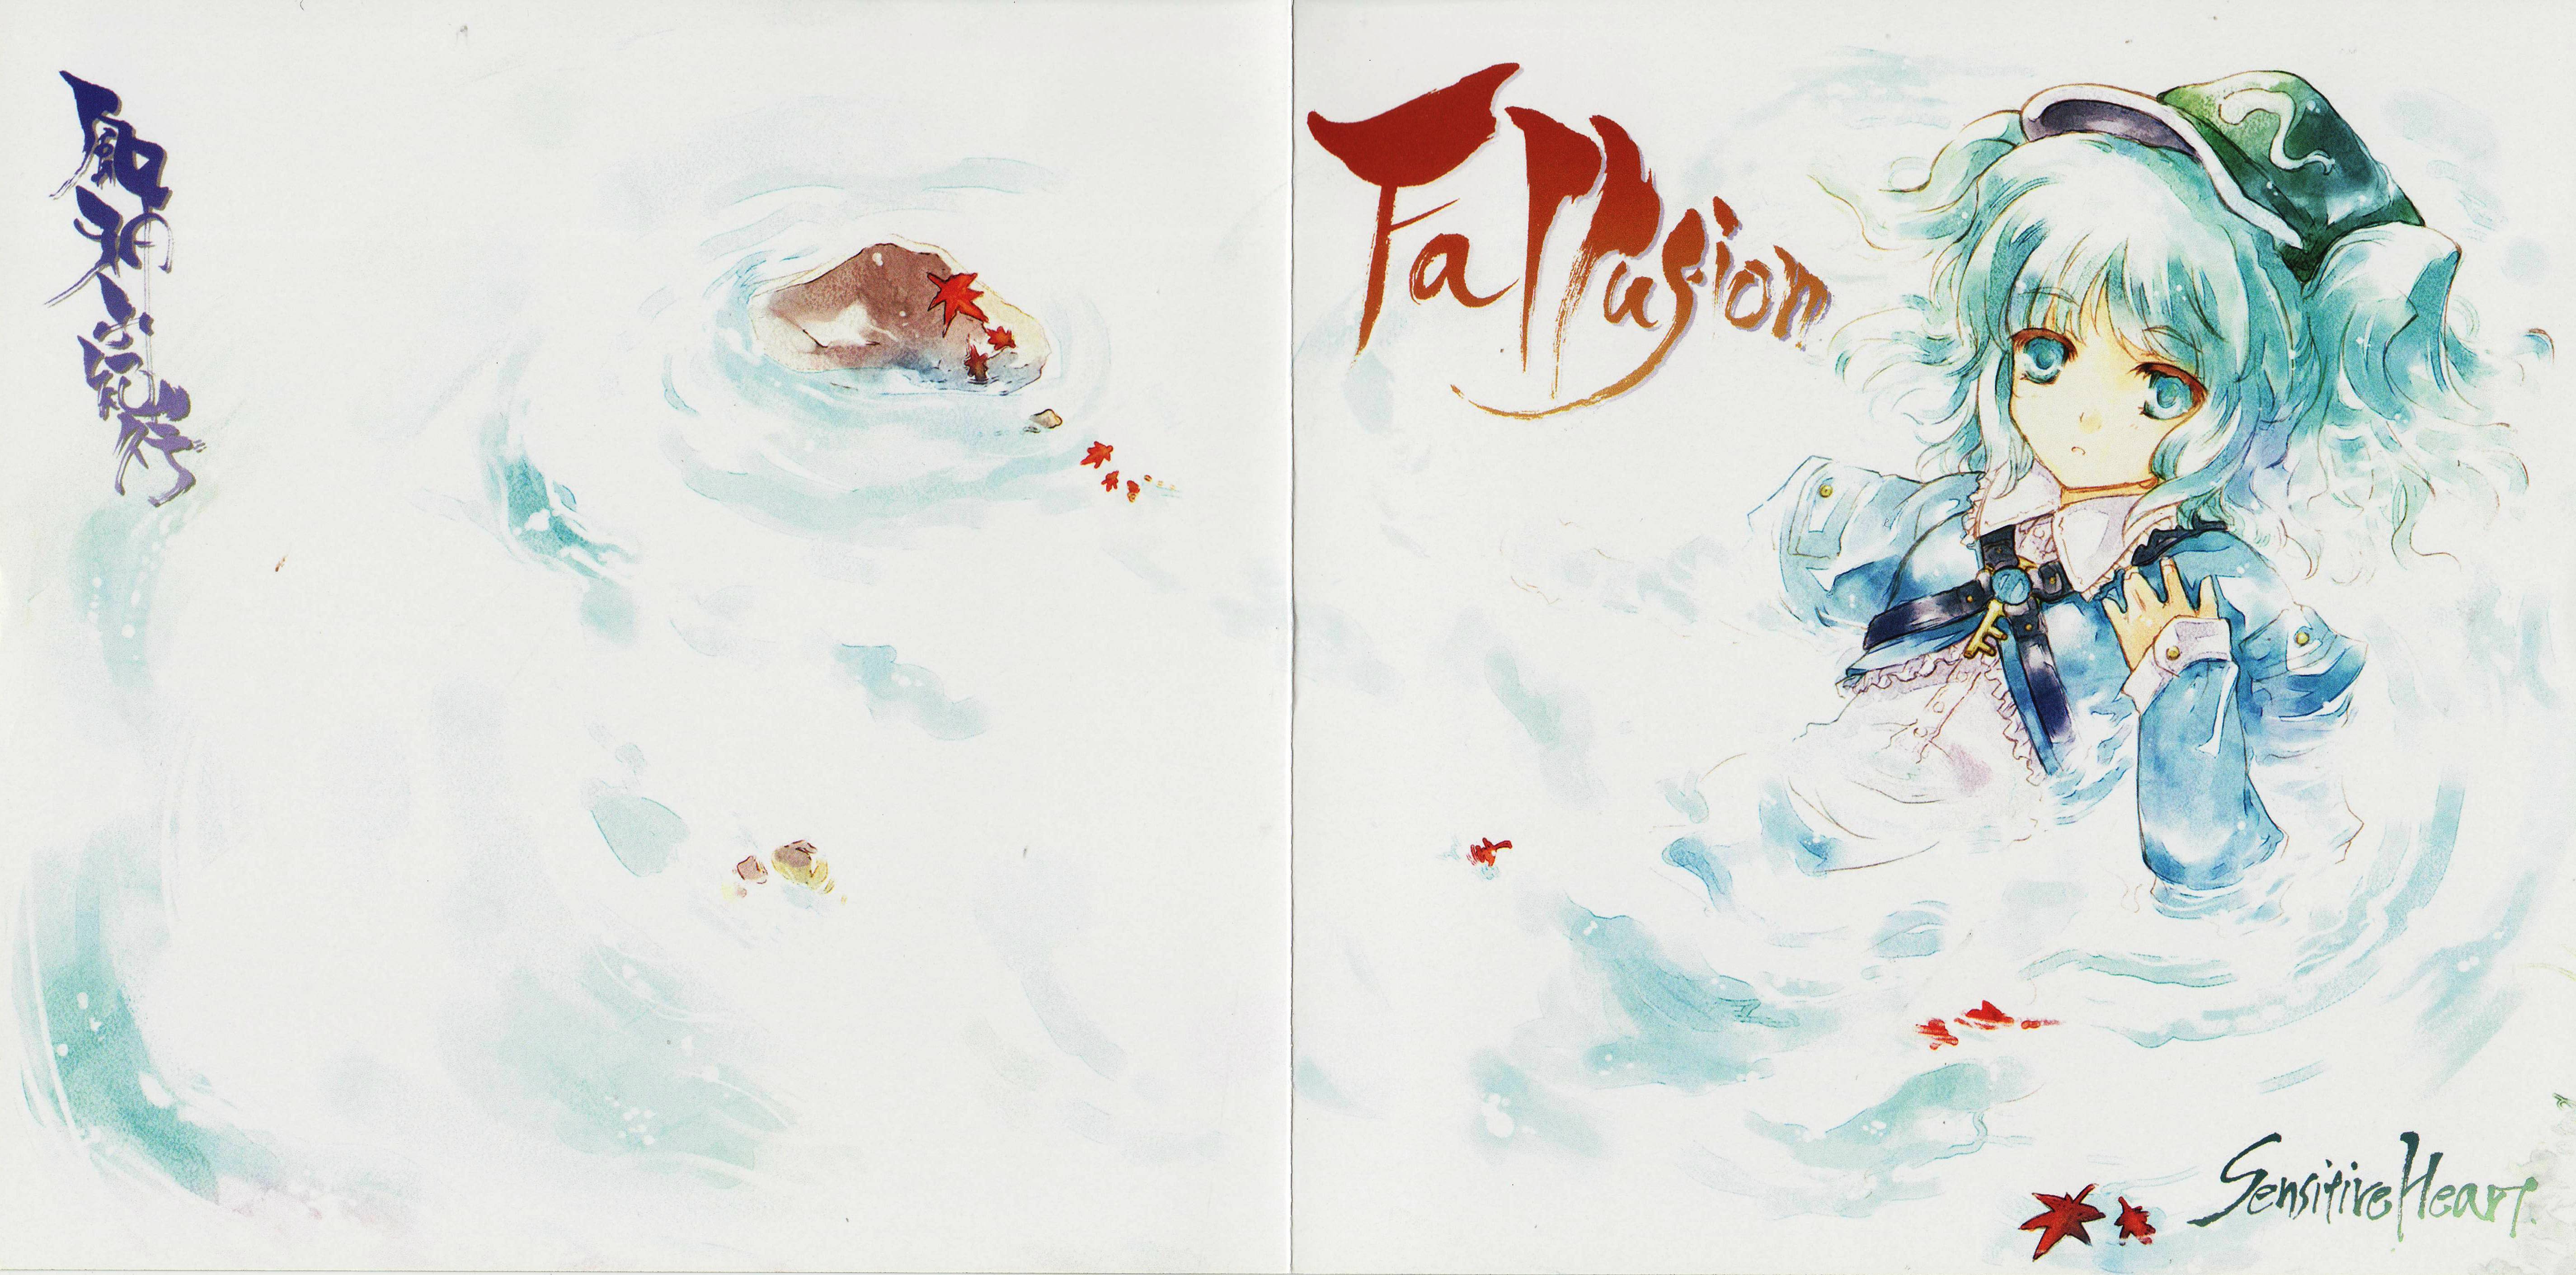 風神幻想紀行
Fallusion
Sensitive Heart.